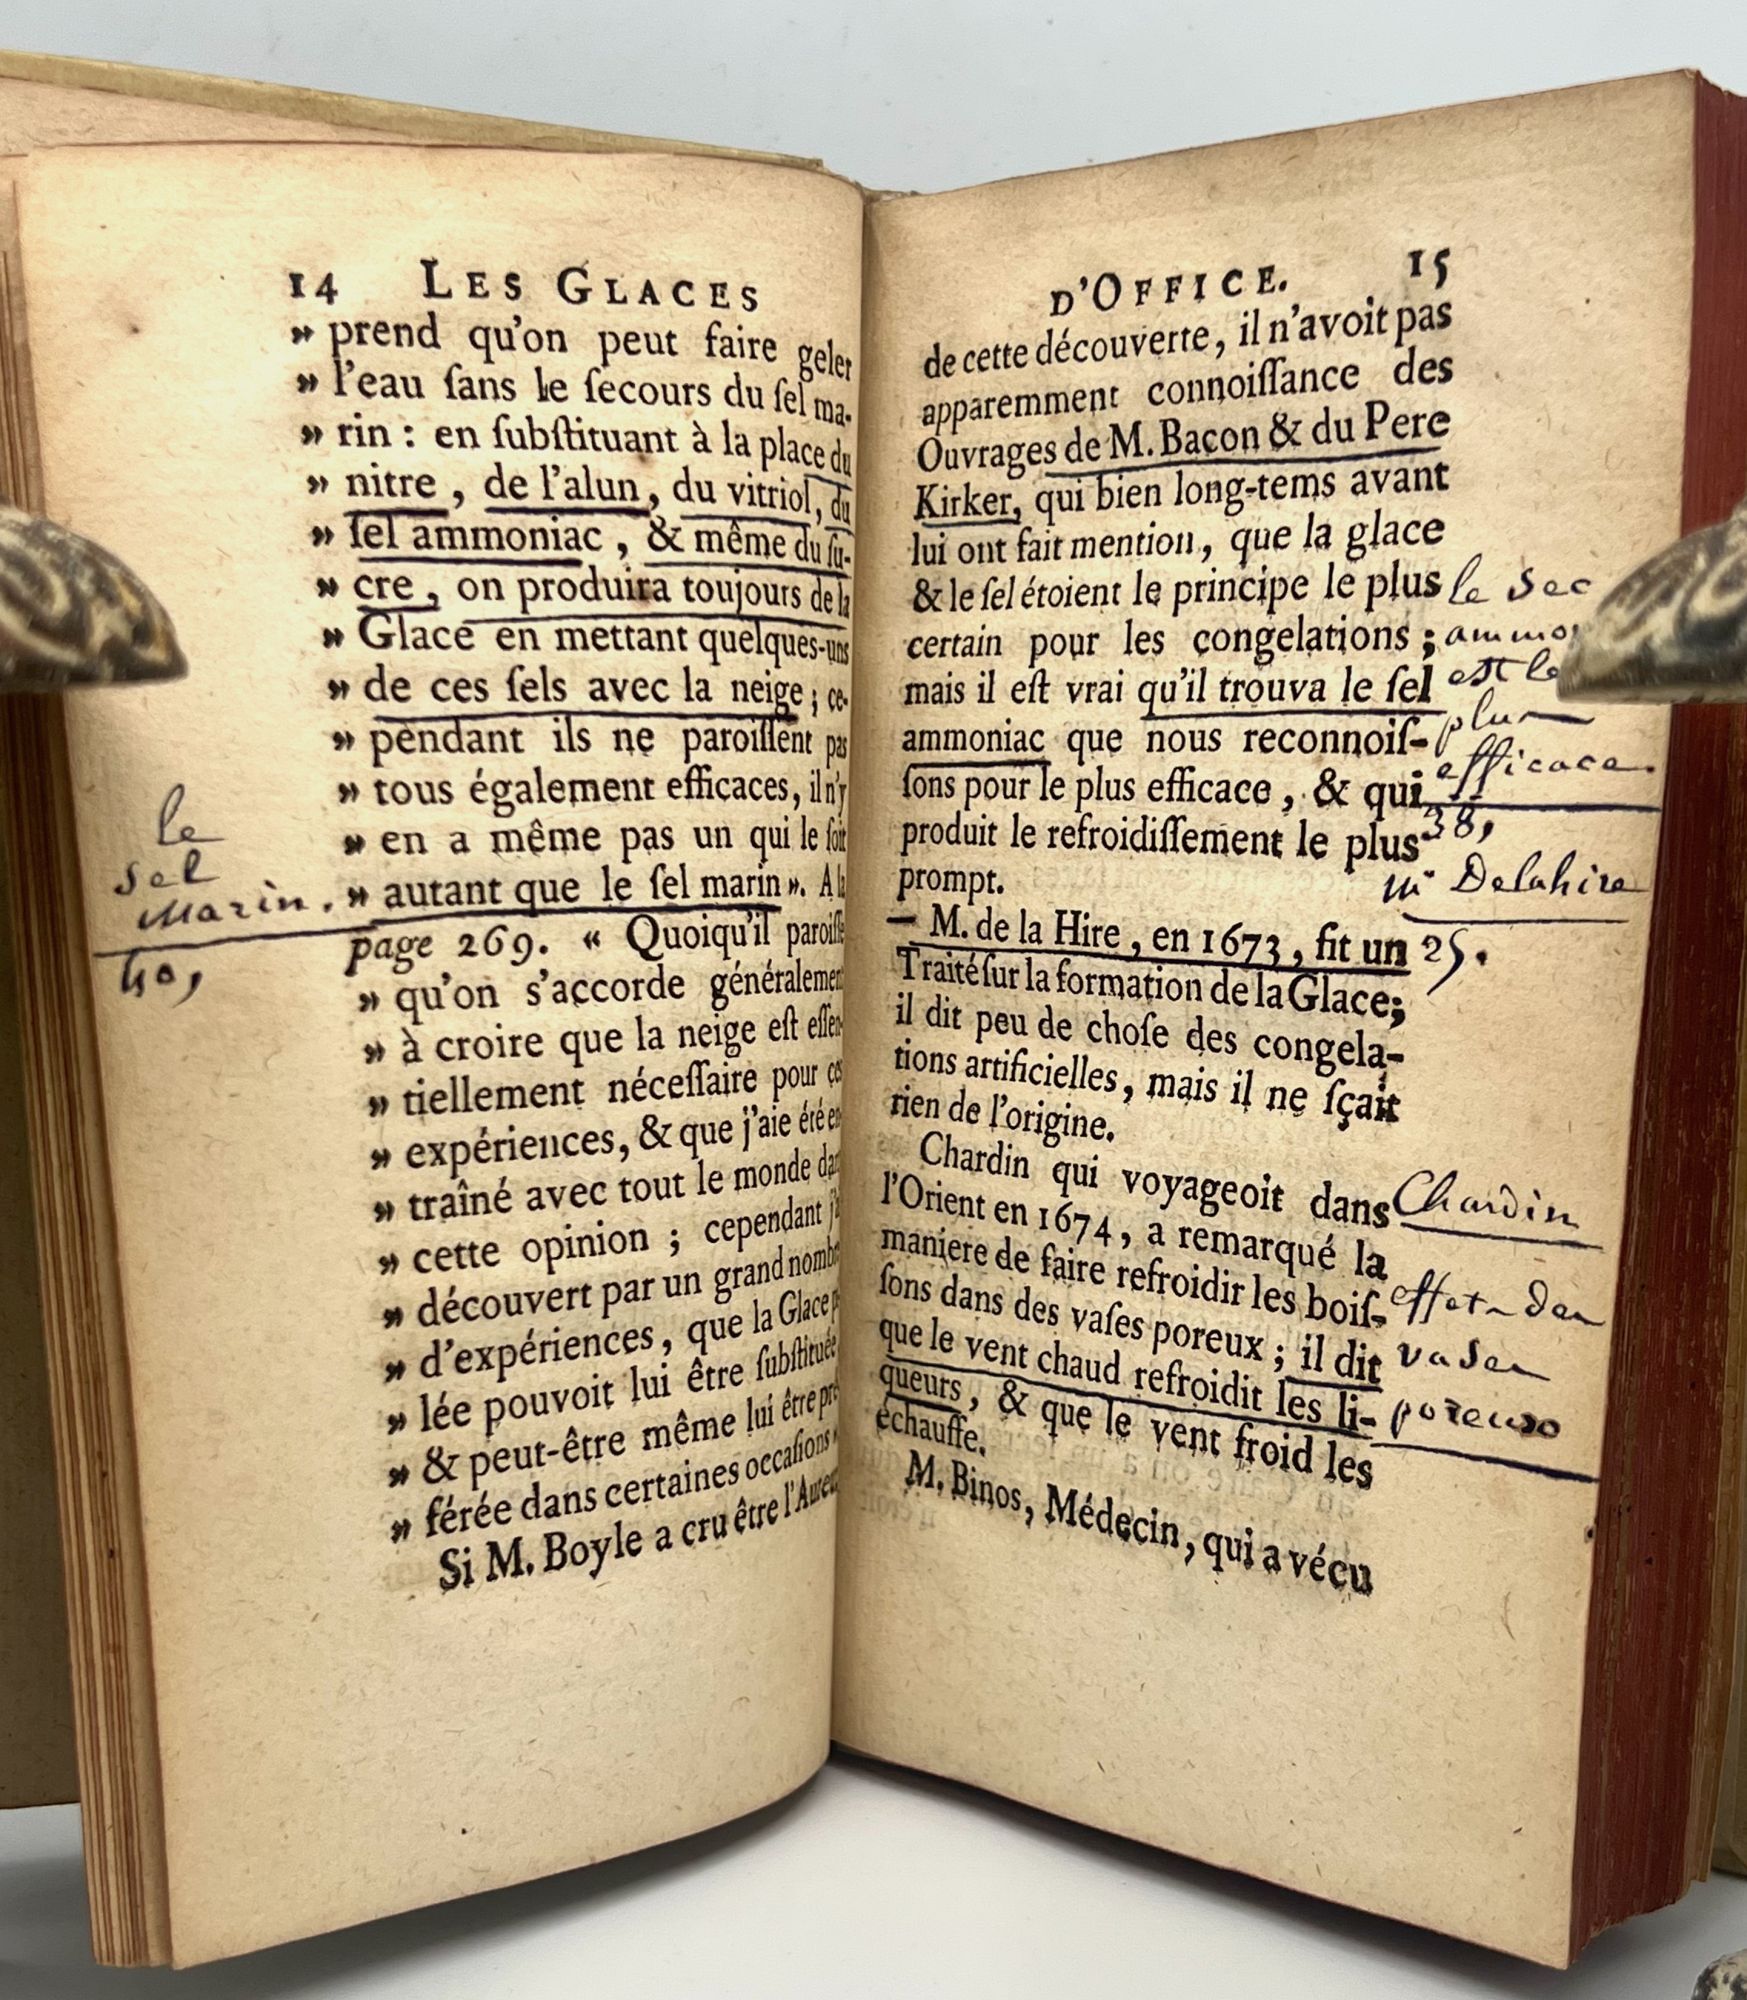 14 LES GLACES
» prend qu'on peut faire geler
» l'eau ſans le ſecours du ſel ma-
» rin : en ſubſtituant à la place du
» nitre, de l'alun, du vitriol, du
» ſel ammoniac, & même du ſu-
» cre, on produira toujours de la
» Glace en mettant quelques-uns
» de ces ſels avec la neige; ce-
» pendant ils ne paroiſſent pas
» tous également efficaces, il n'y
» en a même pas un qui le ſoit
» autant que le ſel marin». A la
page 269. « Quoiqu'il paroiſſe
» qu'on s'accorde généralement
» à croire que la neige eſt eſſen-
» tiellement néceſſaire pour ces
» expériences, & que j'aie été en-
» traîné avec tout le monde dans
» cette opinion; cependant j'ai
» découvert par un grand nombre
» d'expériences, que la Glace
» lée pouvoit lui être ſubſtituée
» & peut-être même lui être pré-
» férée dans certaines occaſions ».
Si M. Boyle a cru être l'Auteur
le
sel
marin.
40,
D'OFFICE. 15
de cette découverte, il n'avoit pas
apparemment connoiſſance des
Ouvrages de M. Bacon & du Pere
Kirker, qui bien long-tems avant
lui ont fait mention, que la glace
& le ſel étoient le principe le plus
certain pour les congelations;
mais il eſt vrai qu'il trouva le ſel
ammoniac que nous reconnoiſ-
ſons pour le plus efficace, & qui
produit le refroidiſſement le plus
prompt.
— M. de la Hire, en 1673, fit un
Traité ſur la formation de la Glace;
il dit peu de choſe des congela-
tions artificielles, mais il ne ſçait
rien de l'origine.
Chardin qui voyageoit dans
l'Orient en 1674, a remarqué la
maniere de faire refroidir les boiſ-
ſons dans des vaſes poreux; il dit
que le vent chaud refroidit les li-
queurs, & que le vent froid les
échauffe.
M. Binos, Médecin, qui a vécu
le
est le
plus
efficace.
38,
mr Delahire
25.
Chardin
effet des
vases
poreux